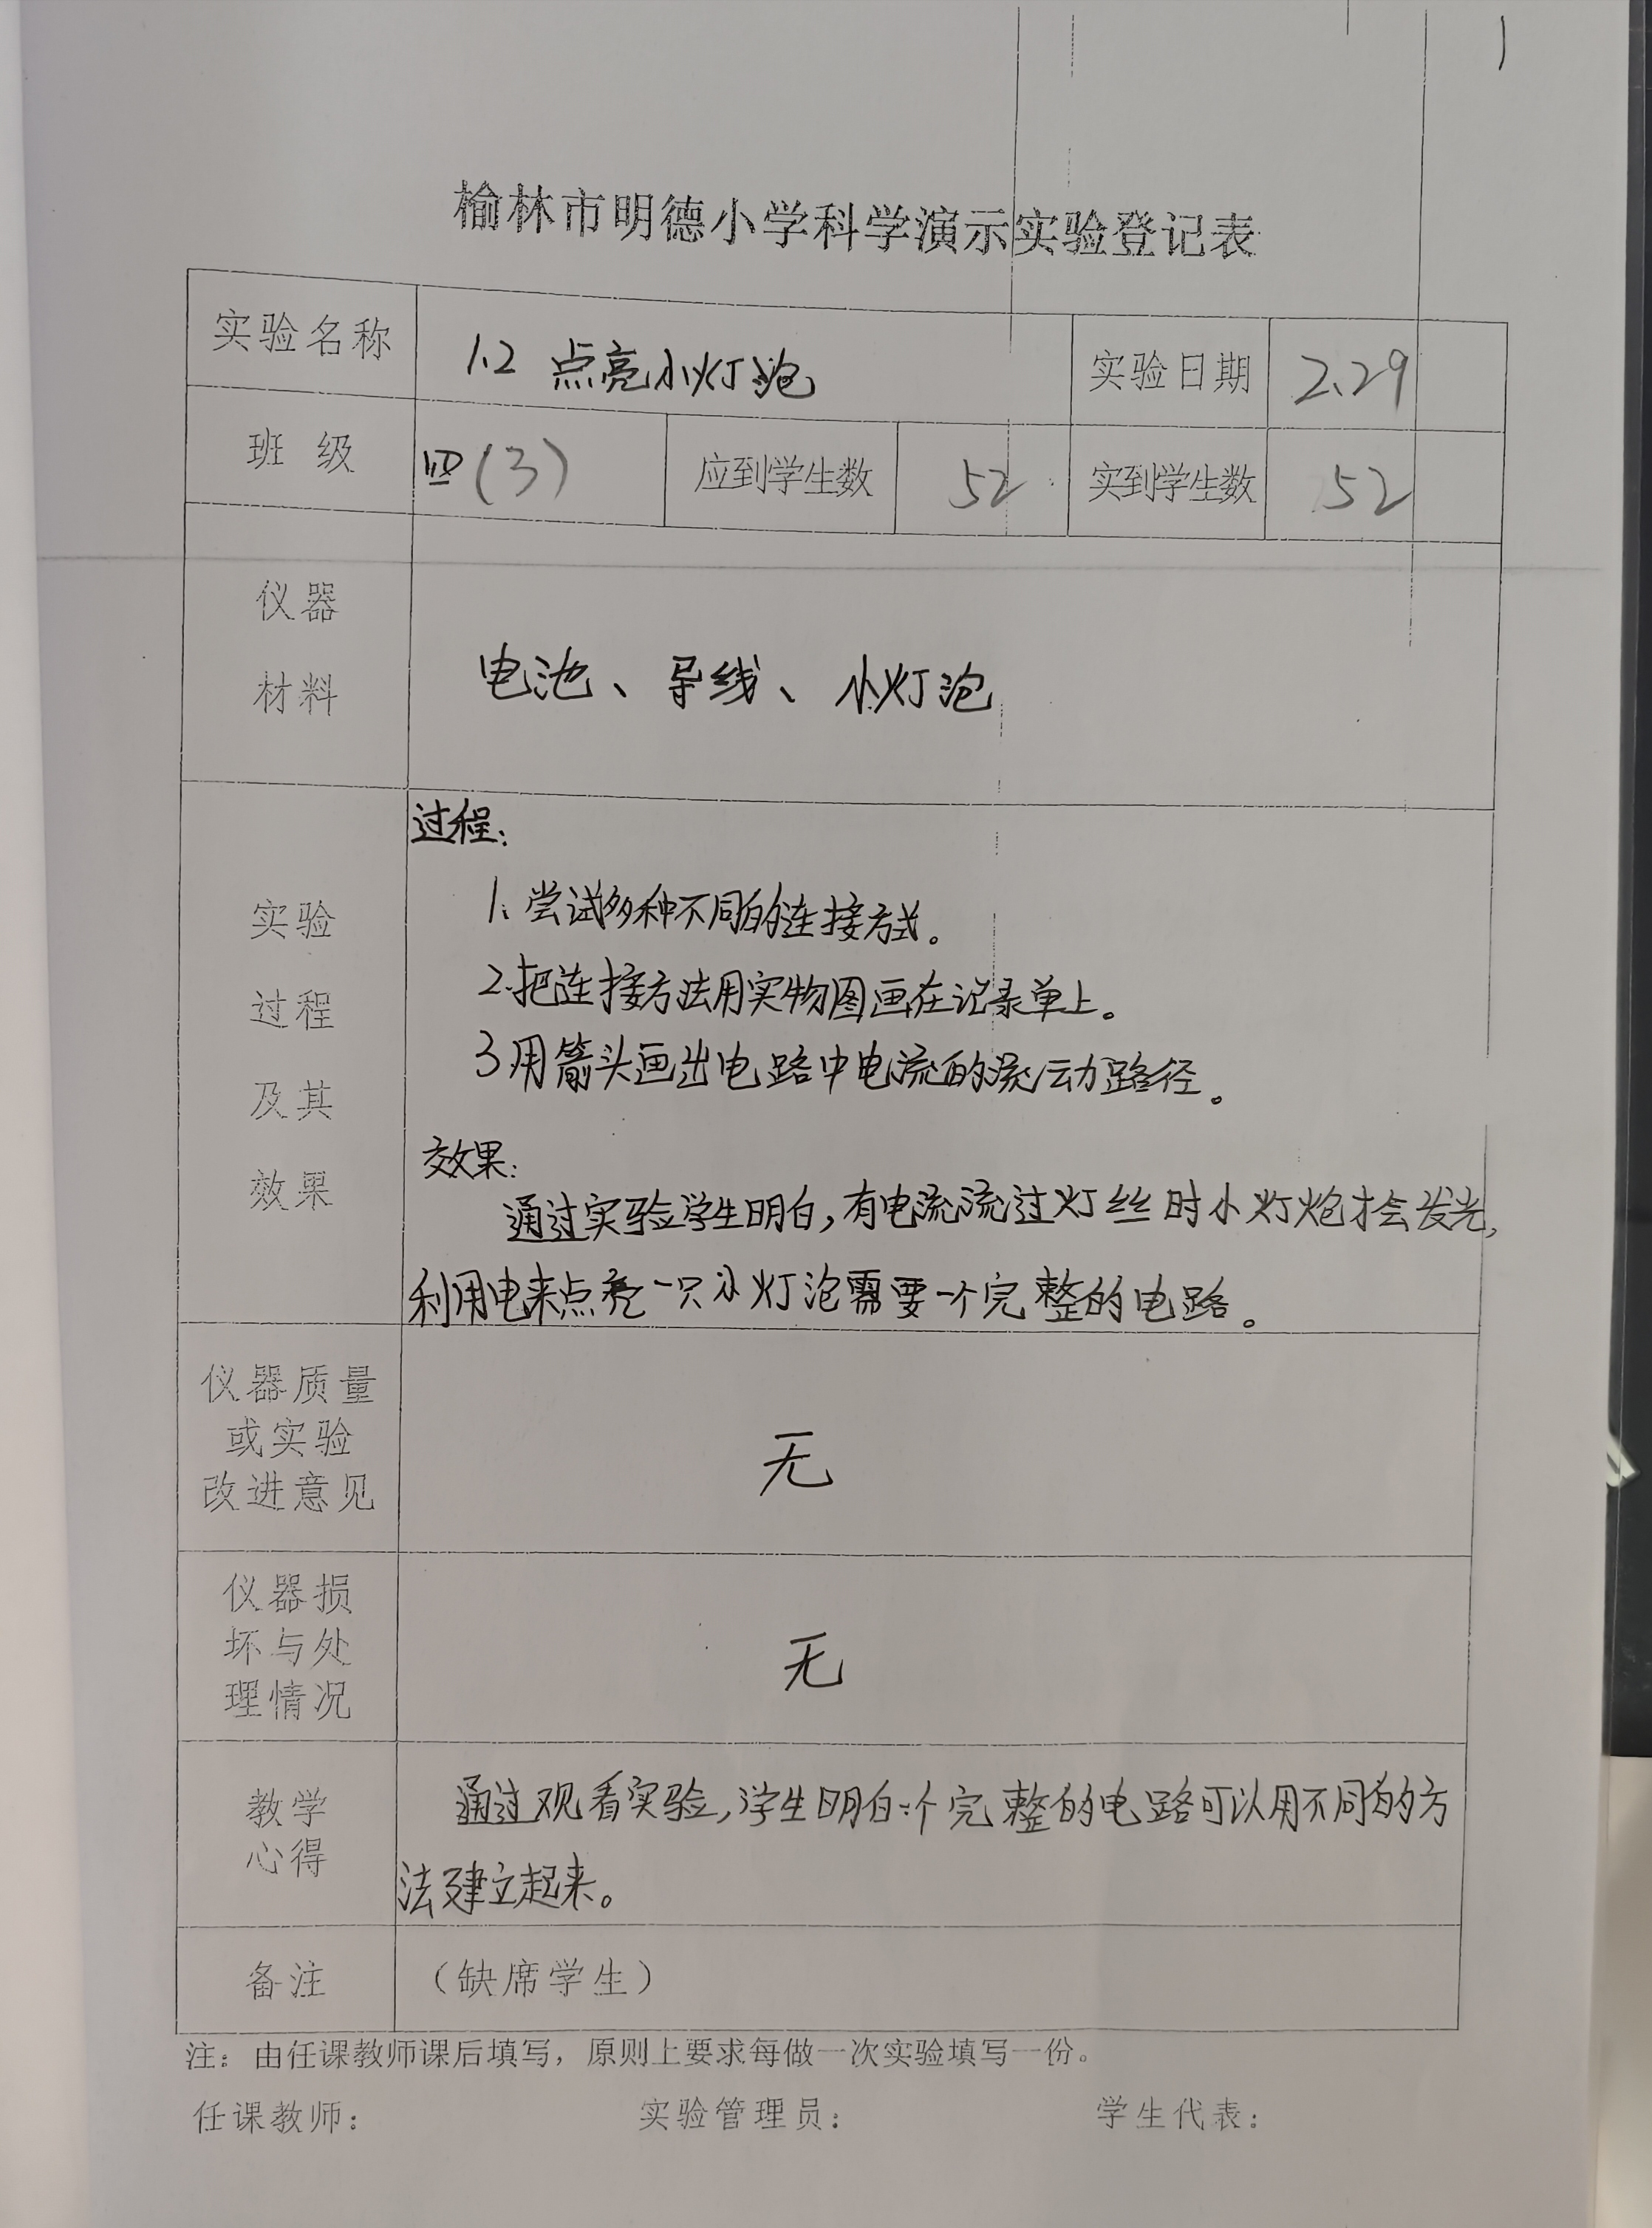 榆林市明德小学科学演示实验登记表
实验名称 1.2 点亮小灯泡 实验日期 2.29
班 级 四(3) 应到学生数 52 实到学生数 52
仪器
材料
电池、导线、小灯泡
实验
过程
及其
效果
过程:
1.尝试多种不同的连接方式。
2.把连接方法用实物图画在记录单上。
3用箭头画出电路中电流的流动路径。
效果:
通过实验学生明白,有电流流过灯丝时小灯炮才会发光,
利用电来点亮一只小灯泡需要一个完整的电路。
仪器质量
或实验
改进意见
无
仪器损
坏与处
理情况
无
教学
心得
通过观看实验,学生明白一个完整的电路可以用不同的方
法建立起来。
备注 (缺席学生)
注:由任课教师课后填写,原则上要求每做一次实验填写一份。
任课教师: 实验管理员: 学生代表: